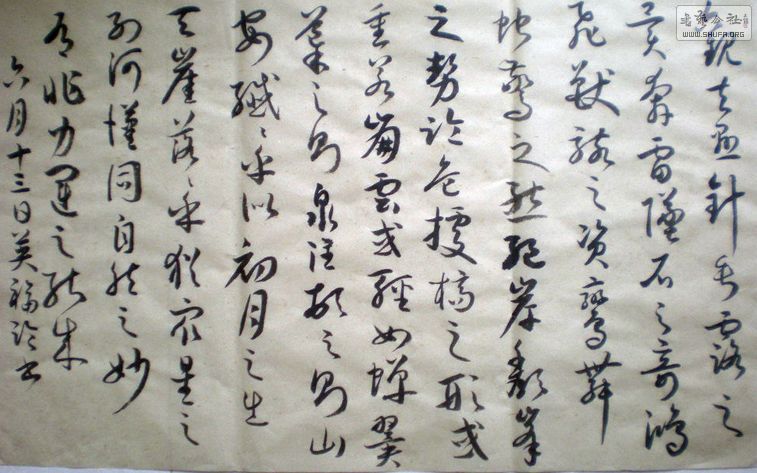 觀夫懸針垂露之
異奔雷墜石之奇鴻
飛獸駭之資鸞舞
蛇驚之態絕岸頹峯
之勢臨危據槁之形或
重若崩雲或輕如蟬翼
導之則泉注頓之則山
安纖〻乎似初月之出
天崖落〻乎猶眾星之
列河漢同自然之妙
有非力運之能成
六月十三日英福臨書
書藝公社
WWW.SHUFA.ORG